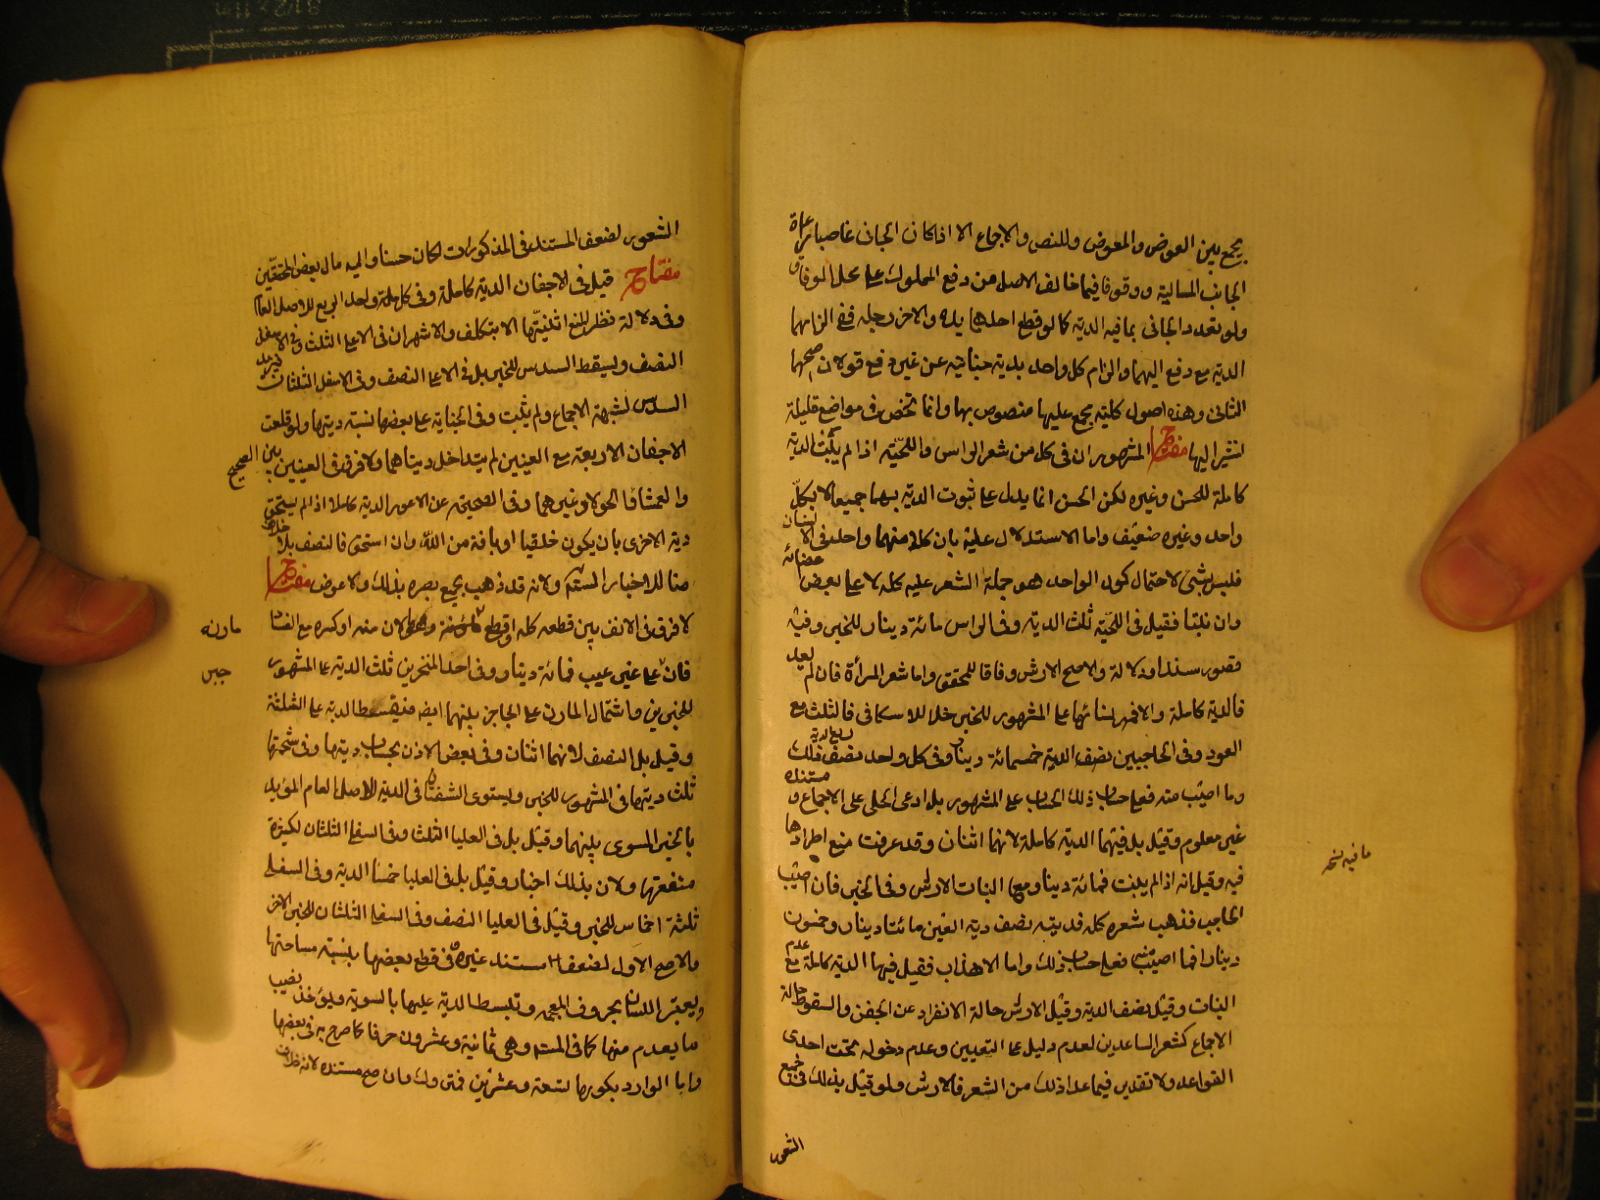 يجمع بين العوض والمعوض وللنص والاجماع الا اذا كان الجانى غاصبا مراعاة
لجانب المالية ووقوفا فيما خالف الاصل من دفع المملوك على محل الوفاق
ولو تعدد الجانى بما فيه الدية كما لو قطع احدهما يده والاخر رجله ففى الزامهما
الدية مع دفع اليهما والزام كل واحد بدية جنايته عن غير دفع قولان اصحهما
الثانى وهذه اصول كلية مجمع عليها منصوص بها وانما تختص فى مواضع قليلة
نشير اليها مفتاح المشهور ان فى كل من شعر الراس واللحية اذا لم ينبت الدية
كاملة للحسن وغيره لكن الحسن انما يدل على ثبوت الدية بهما جميعا لا بكل
واحد وغيره ضعيف واما الاستدلال عليه بان كلا منهما واحد فى الانسان
فليس بشئ لاحتمال كون الواحد هو جملة الشعر عليه كله لا على بعض اعضائه
وان نبتا فقيل فى اللحية ثلث الدية وفى الراس مائة دينار للخبر وفيه
قصور سندا ودلالة والاصح الارش وفاقا للمحقق واما شعر المراة فان لم يعد
فالدية كاملة والا فمهر نسائها على المشهور للخبر خلافا للاسكافى فالثلث مع
العود وفى الحاجبين نصف الدية خمسمائة دينار وفى كل واحد نصف ذلك ربع الدية
وما اصيب منه فعلى حساب ذلك الحساب على المشهور بل ادعى الحلى على الاجماع ومستنده
غير معلوم وقيل بل فيهما الدية كاملة لانهما اثنان وقد عرفت منع اطرادها
فيه وقيل انه اذا لم ينبت فمائة دينار ومع النبات الارش وفى الخبر فان اصيب
الحاجب فذهب شعره كله فديته نصف دية العين مائتا دينار وخمسون
دينارا فما اصيب منه فعلى حساب ذلك واما الاهداب فقيل فيها الدية كاملة مع عدم
النبات وقيل نصف الدية وقيل الارش حالة الانفراد عن الجفن والسقوط حالة
الاجماع كشعر الساعدين لعدم دليل على التعيين وعدم دخوله تحت احدى
القواعد ولا تقدير فيما عدا ذلك من الشعر فالارش ولو قيل بذلك فى جميع
الشعور
ما فيه نسخه
الشعور لضعف المستند فى المذكورات لكان حسنا واليه مال بعض المحققين
مفتاح قيل فى الاجفان الدية كاملة وفى كل واحد الربع للاصل العام
وفى دلالة نظر لمنع اثنينيتها الا بتكلف والاشهر ان فى الاعلى الثلث وفى الاسفل
النصف ويسقط السدس للخبر بل فى الاعلى النصف وفى الاسفل الثلثان
السدس لشبهة الاجماع ولم يثبت وفى الجناية على بعضها نسبة ديتها ولو قلعت
الاجفان الاربعة مع العينين لم يتداخل ديتاهما ولا فرق فى العينين بين الصحيح
والعمشا والحولا وغيرهما وفى الصحيحة عن الاعور الدية كاملا اذا لم يستحق
دية الاخرى بان يكون خلقيا او بافة من الله وان استحق فالنصف بلا خلاف
منا للاخبار المستفيضة ولانه قد ذهب بجميع بصره بذلك ولا عوض مفتاح
لا فرق فى الانف بين قطعه كله او قطع مارنه وهو مالان منه او كسره مع الفساد
فان جبر على غير عيب فمائة دينار وفى احد المنخرين ثلث الدية على المشهور
للخبرين واشتمال المارن على الحاجز بينهما ايضه فيقسط الدية على الثلثة
وقيل بل النصف لانهما اثنان وفى بعض الاذن بحساب ديتها وفى شحمتها
ثلث ديتها فى المشهور للخبر ويستوى الشفتان فى الدية للاصل العام المؤيد
بالخبر المسوى بينهما وقيل بل فى العليا الثلث وفى السفلى الثلثان لكثرة
منفعتها ولان بذلك اخبار وقيل بل فى العليا خمسا الدية وفى السفلى
ثلثة اخماس للخبر وقيل فى العليا النصف وفى السفلى الثلثان للخبر الاخر
والاصح الاول لضعف مستند غيره وفى قطع بعضها بنسبة مساحتها
ويعتبر اللسان بحروف المعجم وتبسط الدية عليها بالسوية ويؤخذ نصيب
ما يعدم منها كما فى المستفيضة وهى ثمانية وعشرون حرفا كما صرح به فى بعضها
واما الوارد بكونها تسعة وعشرين فمتروك وان صح مستنده لانه خلاف
مارنه
جبر